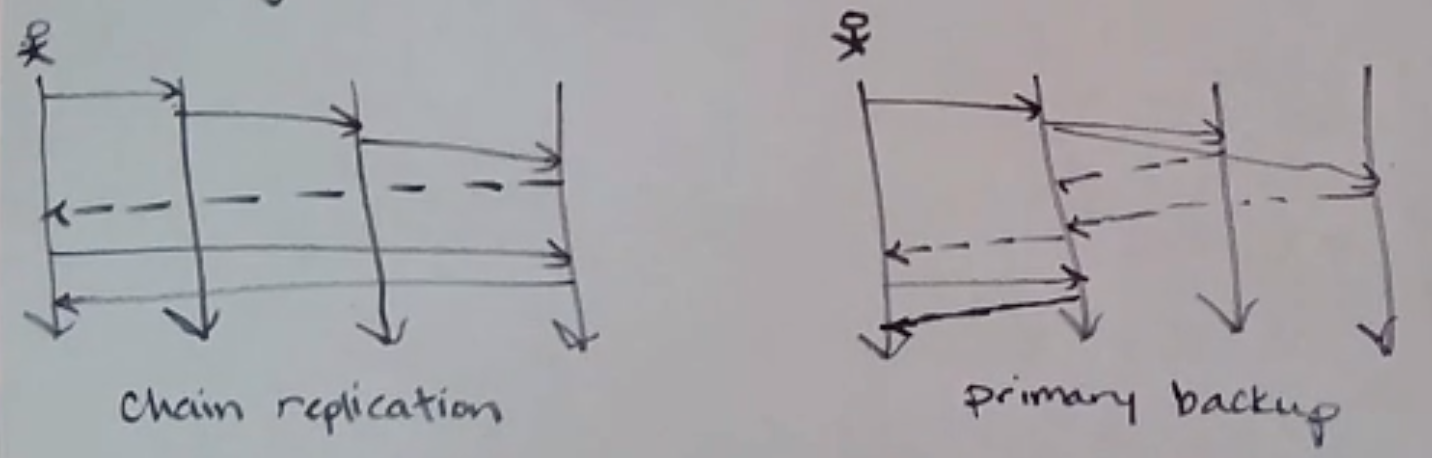 chain replication
primary backup